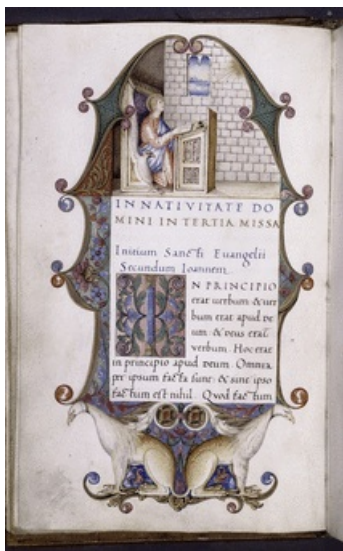 IN NATIVITATE DO
MINI IN TERTIA MISSA
Initium Sancti Euangelii
Secundum Ioannem.
IN PRINCIPIO
erat uerbum & uer
bum erat apud de
um & deus erat
verbum. Hoc erat
in principio apud deum. Omnia
per ipsum facta sunt: & sine ipso
factum est nihil. Quod factum